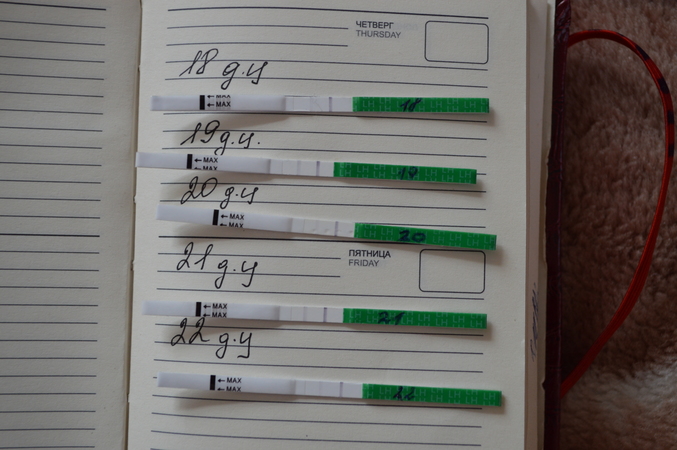 ЧЕТВЕРГ
THURSDAY
18 д.ц
← MAX
← MAX
18
19 д.ц.
← MAX
← MAX
19
20 д.ц
← MAX
← MAX
20
ПЯТНИЦА
FRIDAY
21 д.ц
← MAX
← MAX
21
22 д.ц
← MAX
← MAX
22